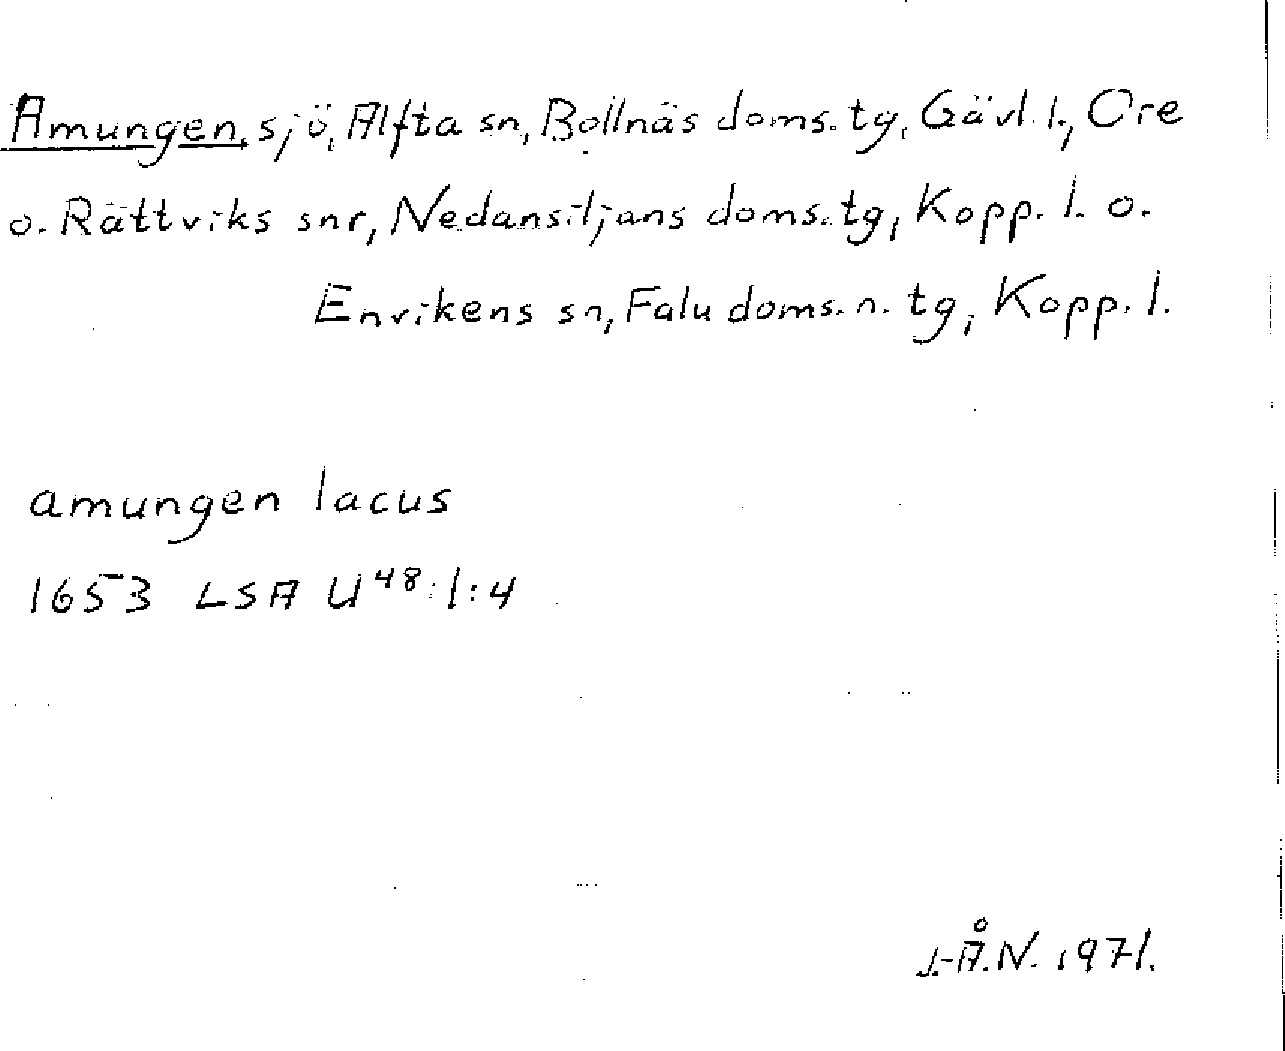 Amungen, sjö, Alfta sn, Bollnäs doms. tg, Gävl. l., Ore
o. Rättviks snr, Nedansiljans doms. tg, Kopp. l. o.
Envikens sn, Falu doms. n. tg, Kopp. l.
amungen lacus
1653 LSA U48:1:4
J.-Å.N. 1971.